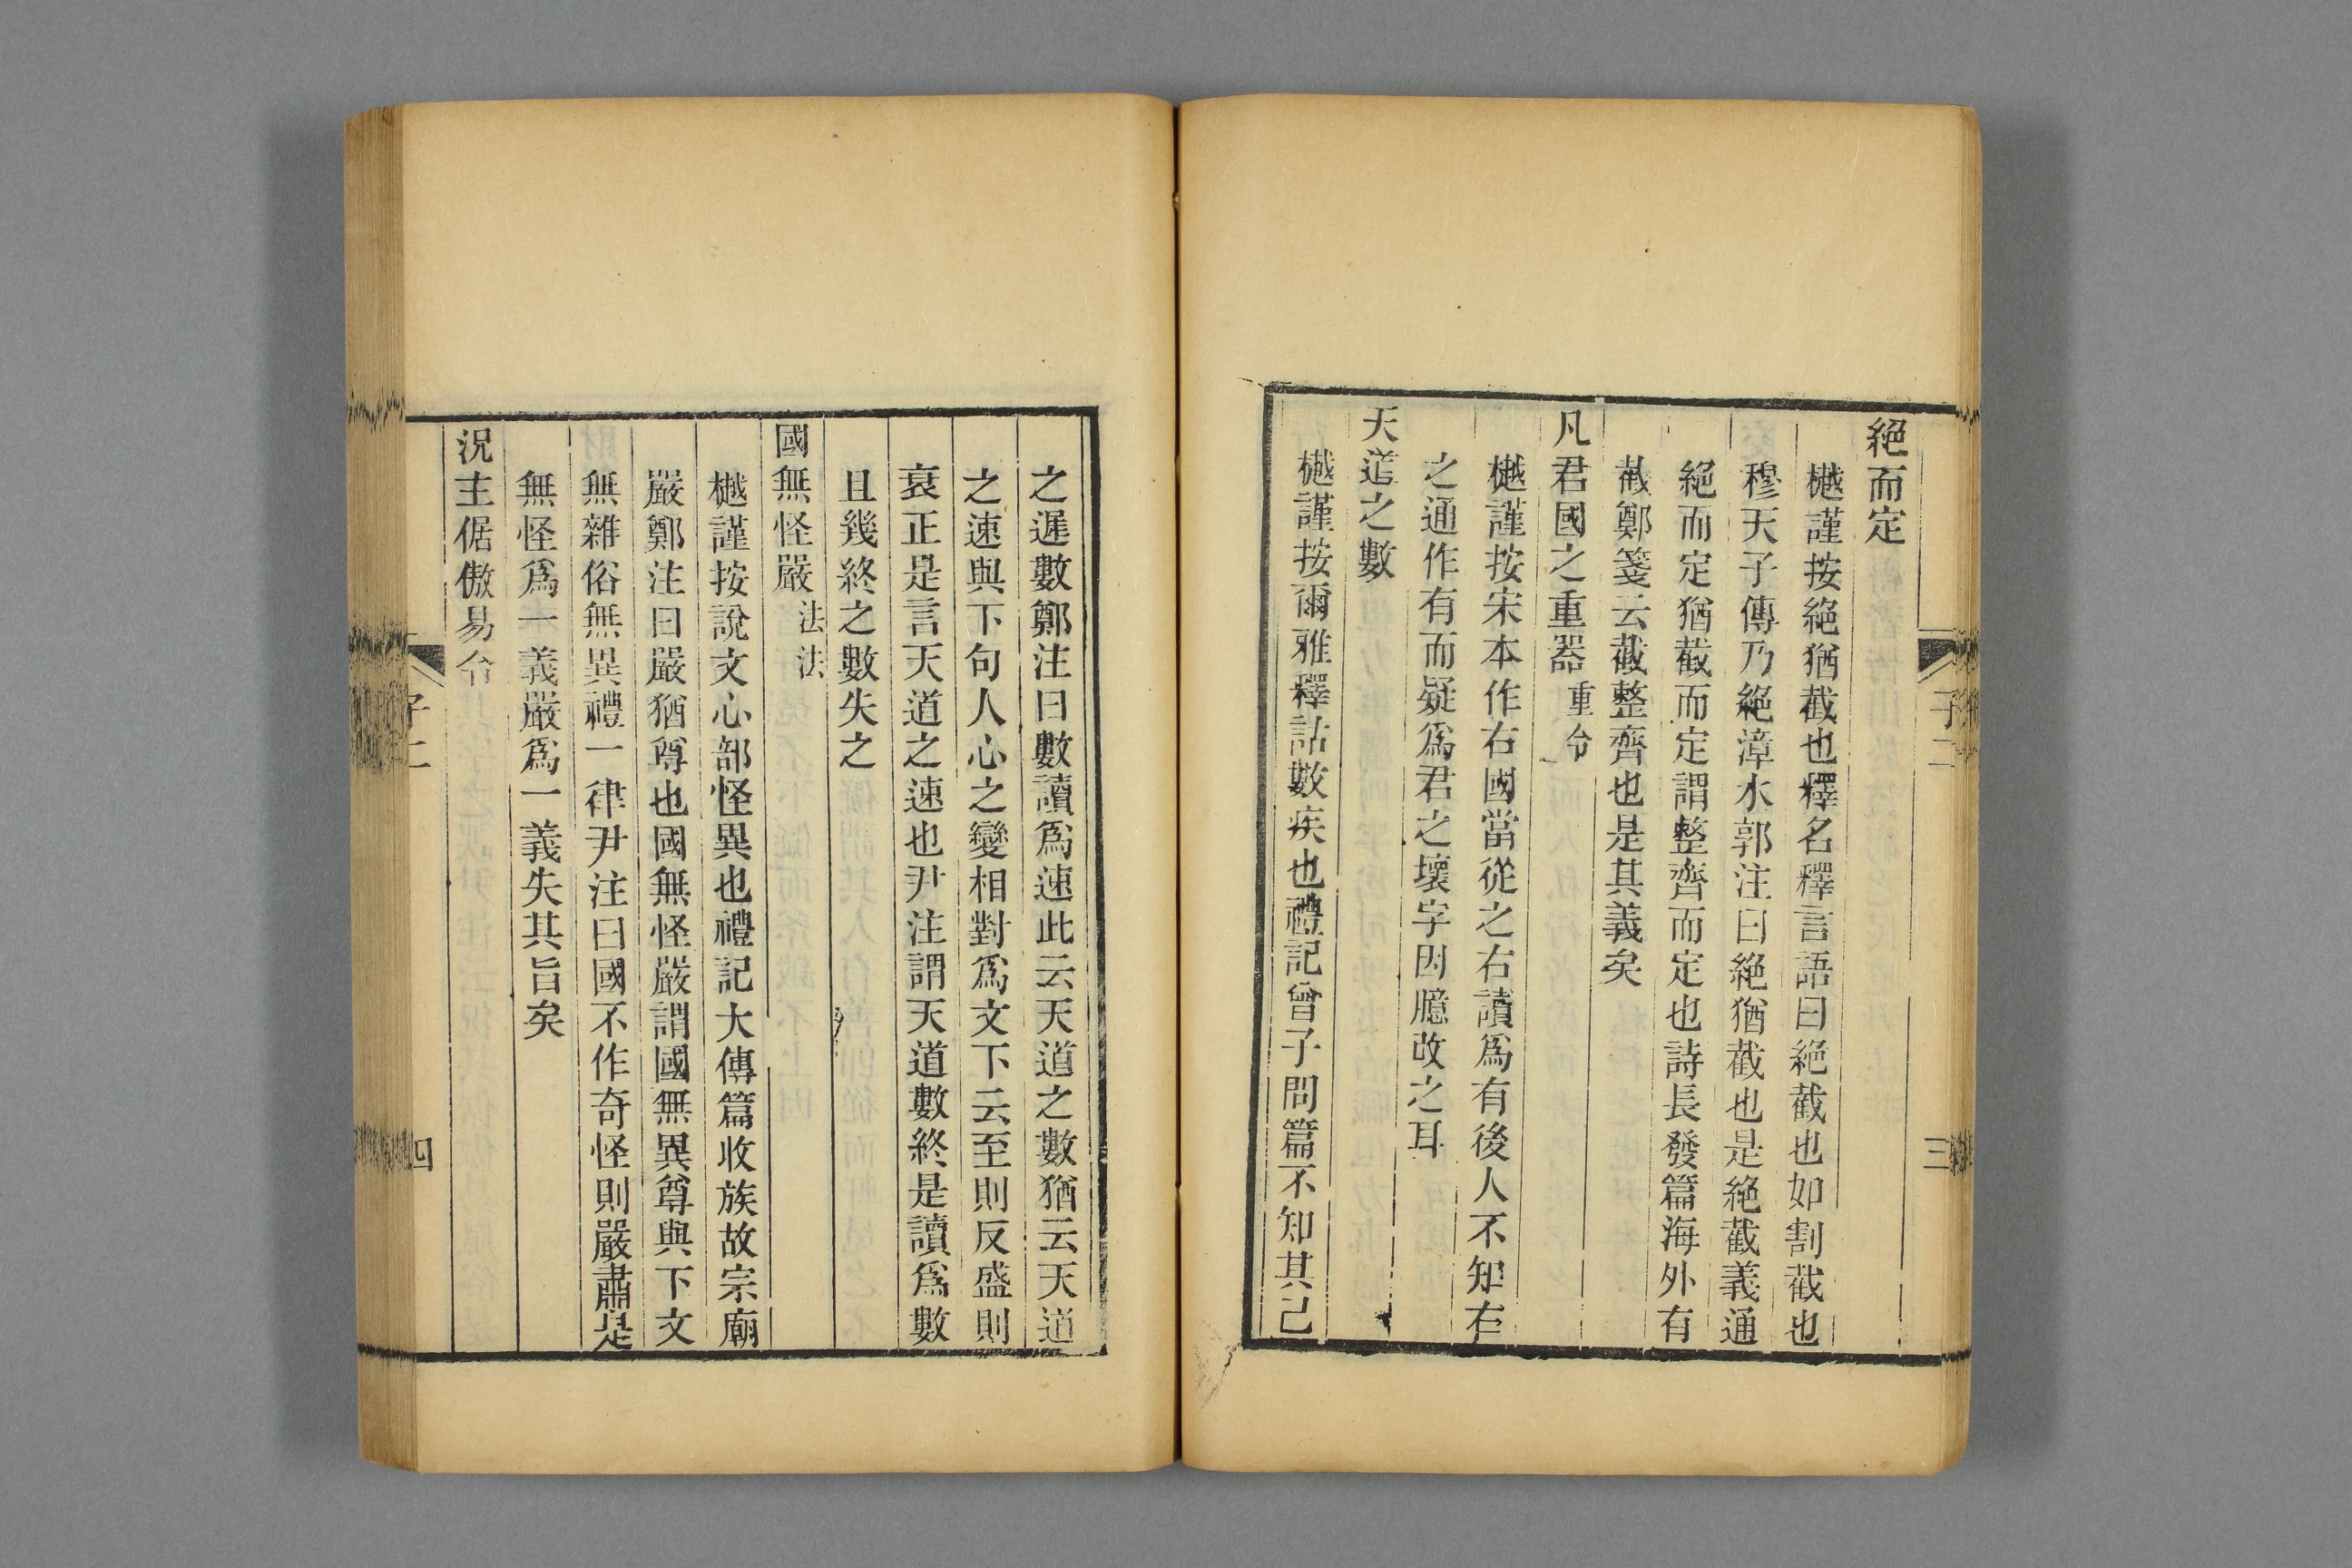 絕而定
樾謹按絕猶截也釋名釋言語曰絕截也如割截也
穆天子傳乃絕漳水郭注曰絕猶截也是絕截義通
絕而定猶截而定謂整齊而定也詩長發篇海外有
截鄭箋云截整齊也是其義矣
凡君國之重器 重令
樾謹按宋本作右國當從之右讀爲有後人不知右
之通作有而疑爲君之壞字因臆改之耳
天道之數
樾謹按爾雅釋詁數疾也禮記曾子問篇不知其己
之遲數鄭注曰數讀爲速此云天道之數猶云天道
之速與下句人心之變相對爲文下云至則反盛則
衰正是言天道之速也尹注謂天道數終是讀爲數
且幾終之數失之
國無怪嚴 法法
樾謹按說文心部怪異也禮記大傳篇收族故宗廟
嚴鄭注曰嚴猶尊也國無怪嚴謂國無異尊與下文
無雜俗無異禮一律尹注曰國不作奇怪則嚴肅是
無怪爲一義嚴爲一義失其旨矣
況主倨傲易令
子二
三
子二
四